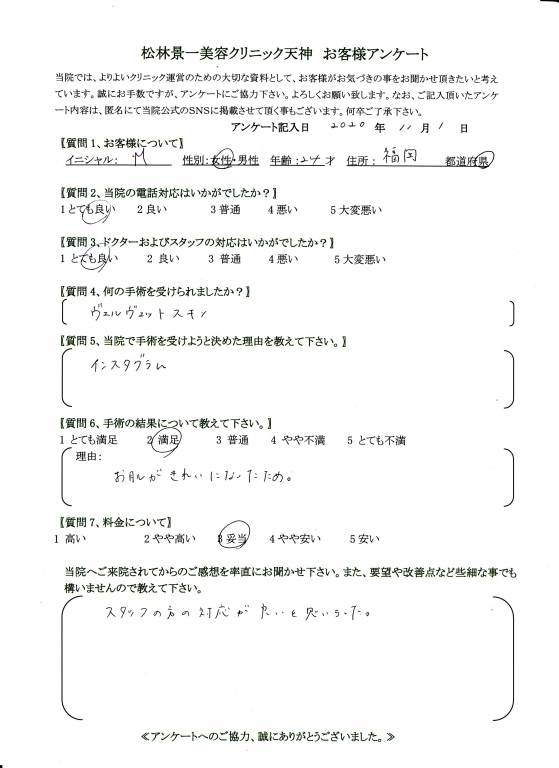 松林景一美容クリニック天神 お客様アンケート
当院では、よりよいクリニック運営のための大切な資料として、お客様がお気づきの事をお聞かせ頂きたいと考え
ています。誠にお手数ですが、アンケートにご協力下さい。よろしくお願い致します。なお、ご記入頂いたアンケ
ート内容は、匿名にて当院公式のSNSに掲載させて頂く事もございます。何卒ご了承下さい。
アンケート記入日 2020 年 11 月 1 日
【質問1、お客様について】
イニシャル: M 性別:女性・男性 年齢:24才 住所: 福岡 都道府県
【質問2、当院の電話対応はいかがでしたか?】
1とても良い 2良い 3普通 4悪い 5大変悪い
【質問3、ドクターおよびスタッフの対応はいかがでしたか?】
1 とても良い 2 良い 3 普通 4悪い 5大変悪い
【質問4、何の手術を受けられましたか?】
ヴェルヴェットスキン
【質問5、当院で手術を受けようと決めた理由を教えて下さい。】
インスタグラム
【質問6、手術の結果について教えて下さい。】
1 とても満足 2 満足 3 普通 4 やや不満 5 とても不満
理由:
お肌がきれいになったため。
【質問7、料金について】
1 高い 2やや高い 3妥当 4やや安い 5安い
当院へご来院されてからのご感想を率直にお聞かせ下さい。また、要望や改善点など些細な事でも
構いませんので教えて下さい。
スタッフの方の対応が良いと思いました。
≪アンケートへのご協力、誠にありがとうございました。≫